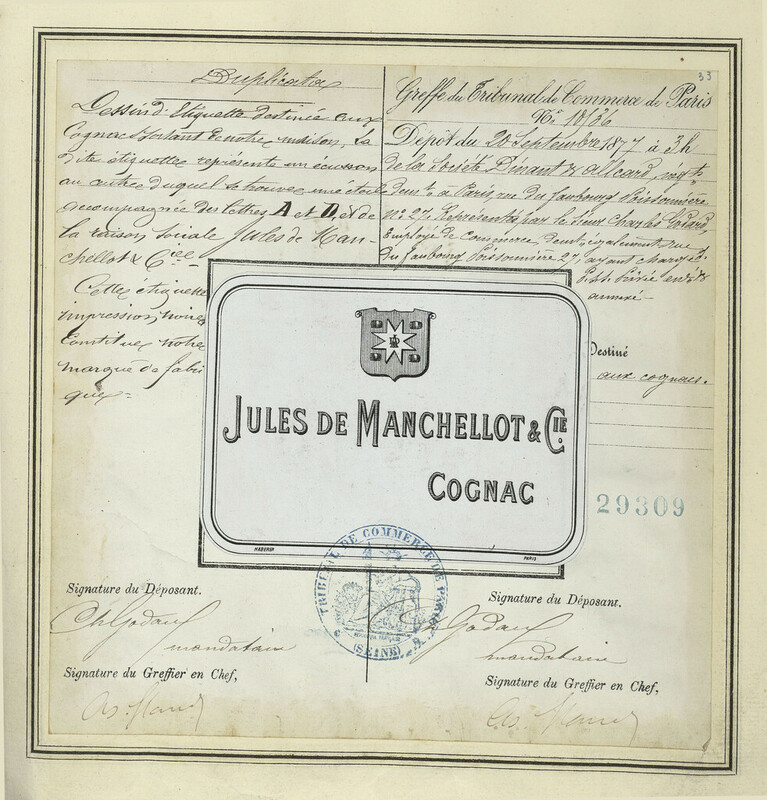 33
Duplicata
Dessin d'Etiquette destinée aux
Cognacs sortant de notre maison, La
dite étiquette représente un écusson
au centre duquel se trouve une étoile
accompagnée des lettres A et D, & de
la raison sociale Jules de Man-
chellot & Cie
Cette étiquette
impression noire
Constitue notre
marque de fabri
que.
Greffe du Tribunal de Commerce de Paris
No 10/36
Dépôt du 20 Septembre 1877 à 3h
de la Société Dinant & Allard, négts
demt à Paris, rue du faubourg Poissonnière
No 27, Représentée par le Sieur Charles Godard,
Employé de Commerce, demt également rue
du faubourg Poissonnière 27, ayant charge
annexé
Destiné
aux cognacs.
JULES DE MANCHELLOT & CIE.
COGNAC
PARIS
29309
TRIBUNAL DE COMMERCE DE PARIS
(SEINE)
Signature du Déposant.
Ch Godard
mandataire
Signature du Greffier en Chef,
Signature du Déposant.
Ch Godard
mandataire
Signature du Greffier en Chef,